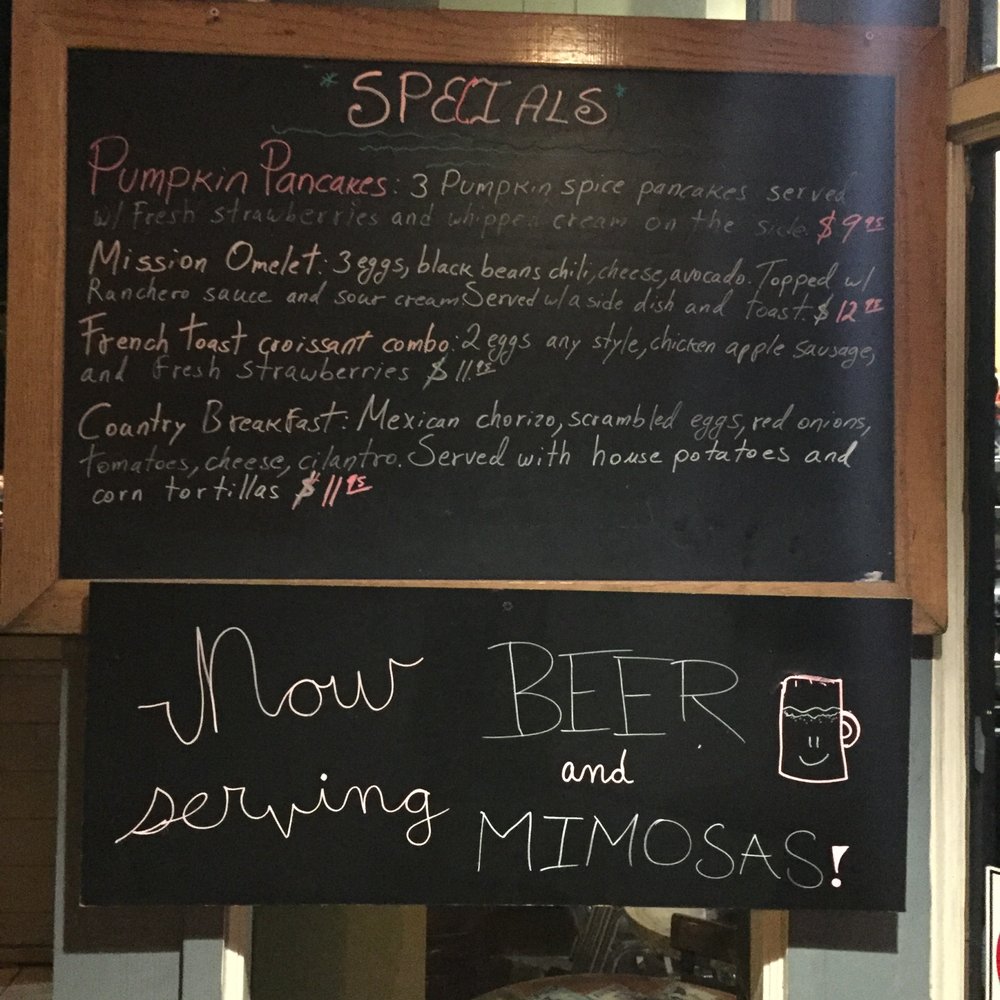 * SPECIALS *
Pumpkin Pancakes: 3 Pumpkin spice pancakes served
w/ Fresh strawberries and whipped cream on the side $9.95
Mission Omelet: 3 eggs, black beans chili, cheese, avocado. Topped w/
Ranchero sauce and sour cream. Served w/ a side dish and toast. $12.95
French toast croissant combo: 2 eggs any style, chicken apple sausage,
and fresh strawberries $11.95
Country Breakfast: Mexican chorizo, scrambled eggs, red onions,
tomatoes, cheese, cilantro. Served with house potatoes and
corn tortillas $11.95
Now
serving
BEER
and
MIMOSAS!